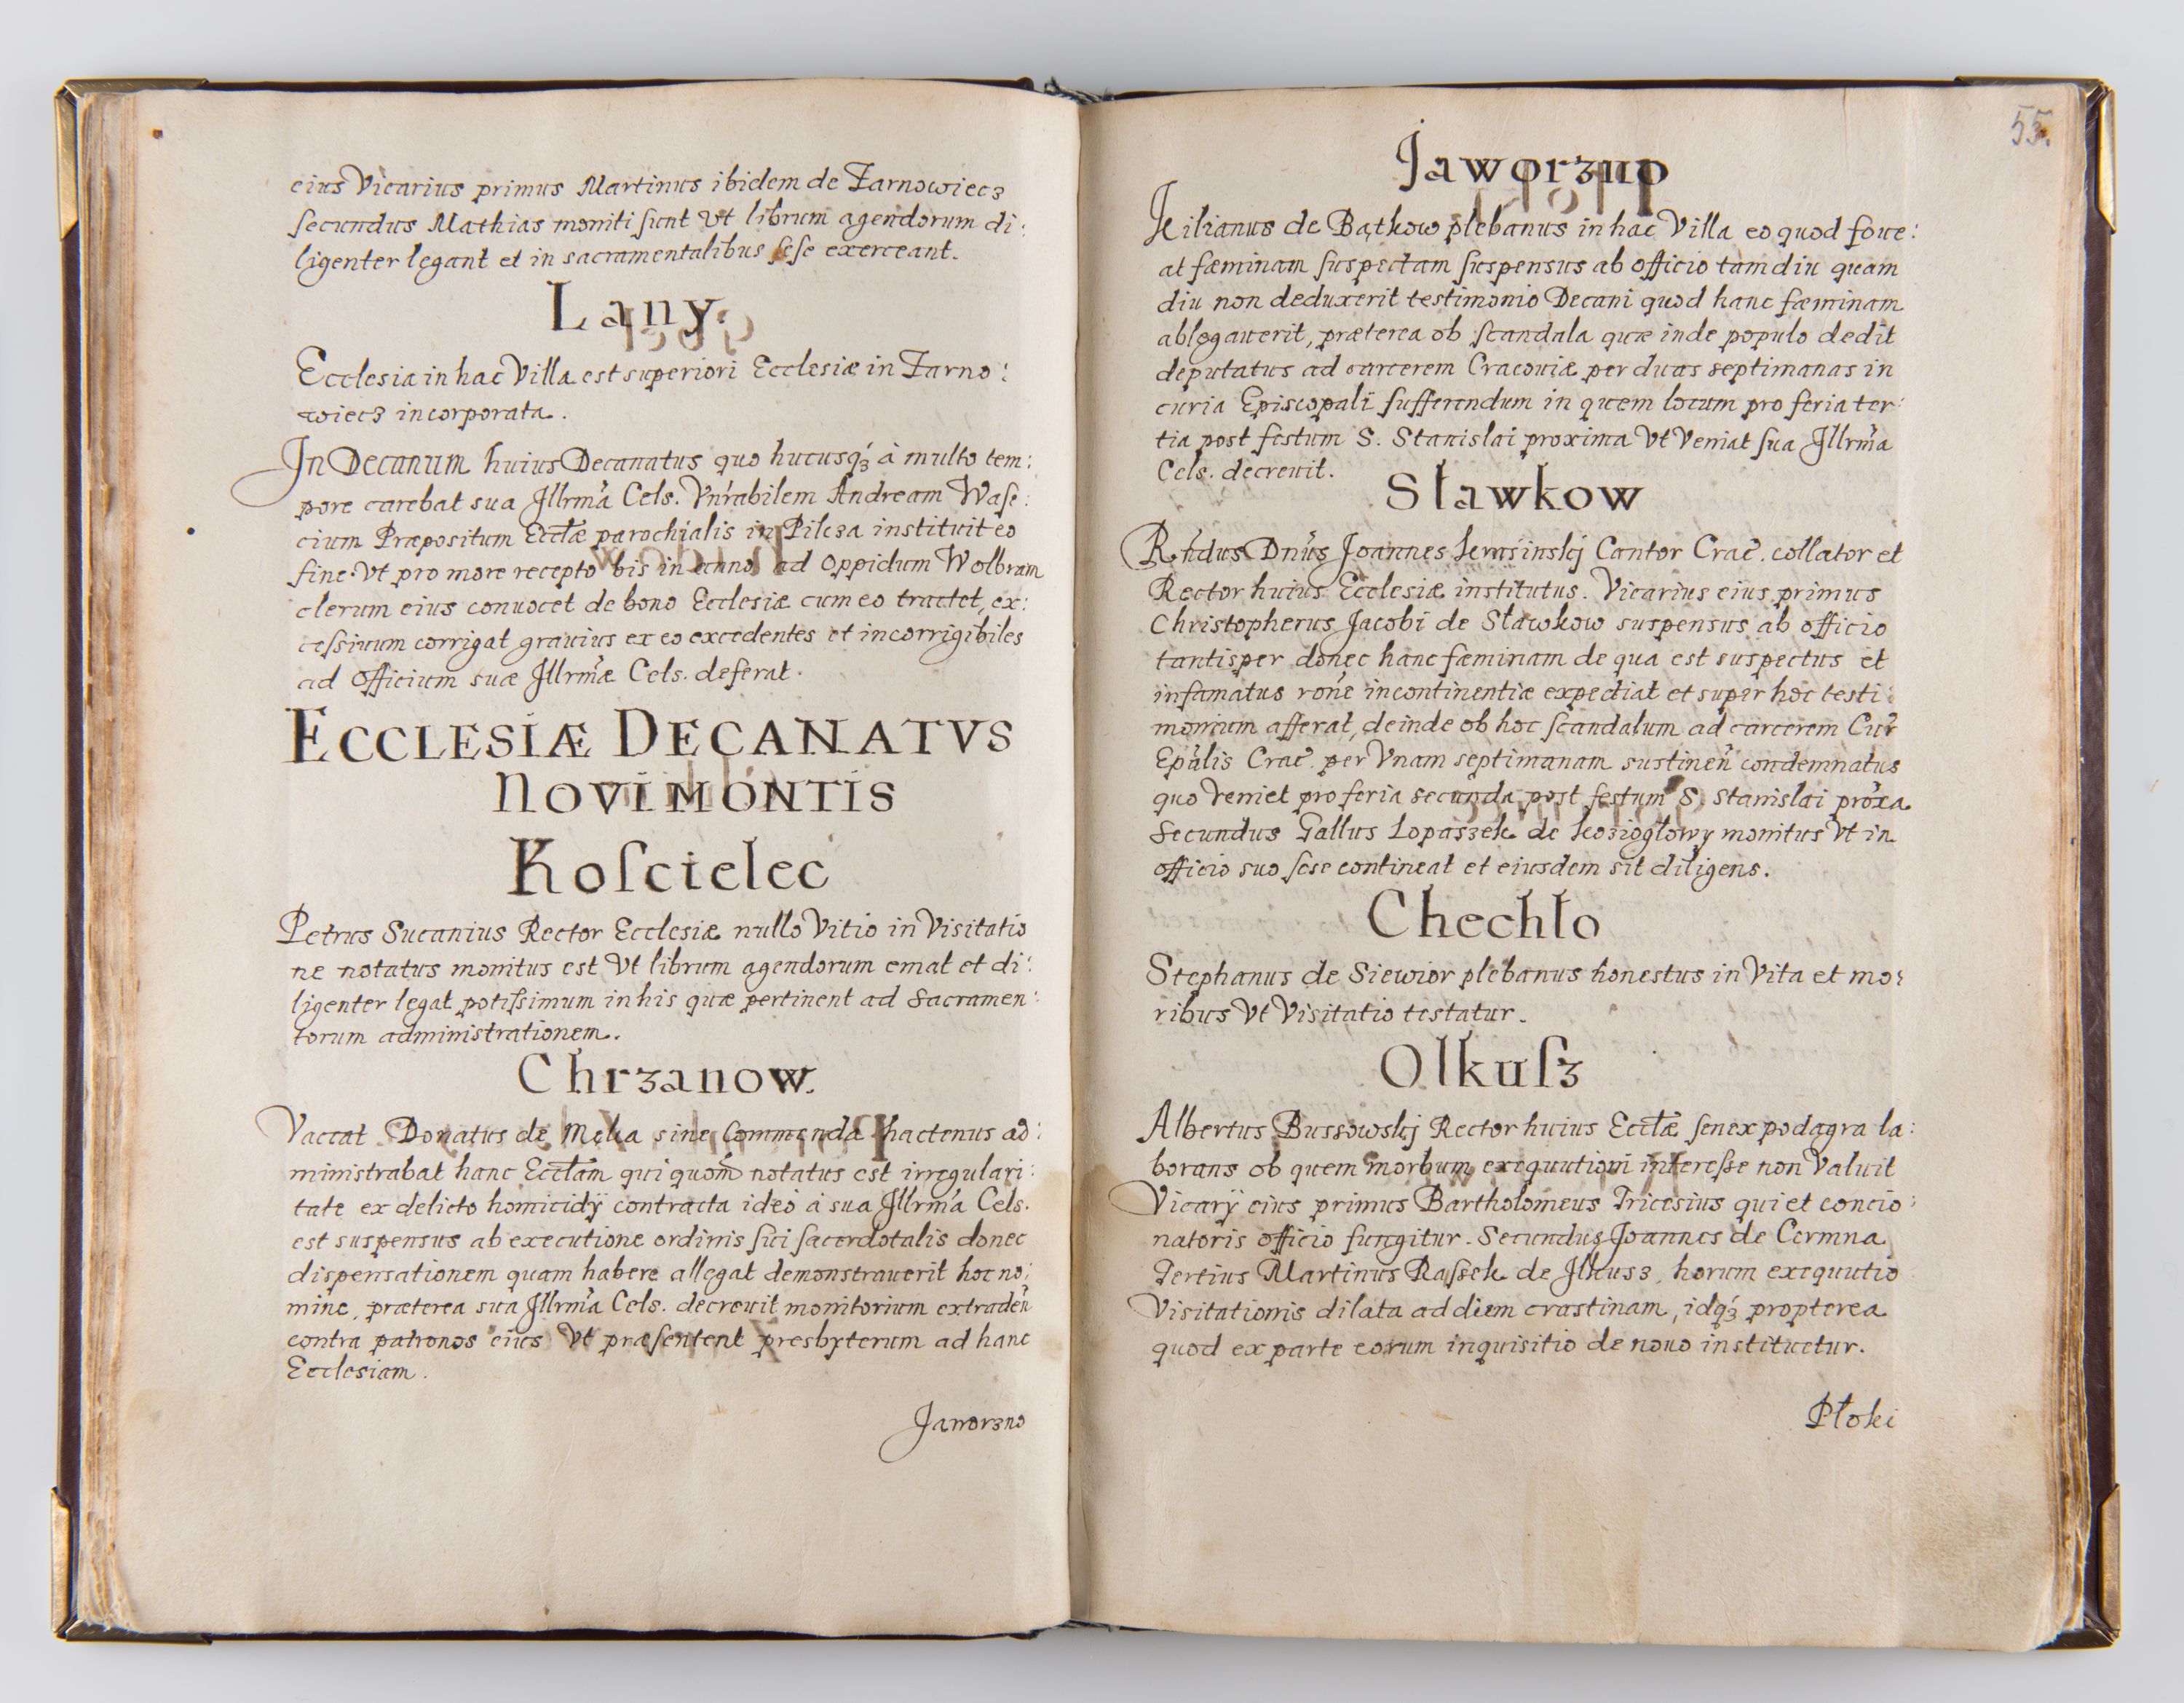 eius Vicarius primus Martinus ibidem de Żarnowiecz
secundus Mathias moniti sunt Vt librum agendorum di:
ligenter legant et in sacramentalibus sese exerceant.
Lany.
Ecclesia in hac Villa est superiori Ecclesiæ in Żarno:
wiecz incorporata.
In Decanum huius Decanatus quo hucusqȝ à multo tem:
pore carebat sua Illrm̃a Cels. Vnrabilem Andream Wase:
cium Præpositum Eccl̃æ parochialis in Pilcza instituit eo
fine Vt pro more recepto bis in anno ad Oppidum Wolbram
clerum eius conuocet de bono Ecclesiæ cum eo tractet, ex:
cessiuum corrigat grauius ex eo excedentes et incorrigibiles
ad Officium suæ Illrm̃æ Cels. deferat.
ECCLESIÆ DECANATVS
NOVI MONTIS
Koſcielec
Petrus Sucanius Rector Ecclesiæ nullo Vitio in Visitatio
ne notatus monitus est Vt librum agendorum emat et di:
ligenter legat potissimum in his quæ pertinent ad Sacramen:
torum administrationem.
Chrzanow.
Vaccat Donatus de Męka sine Commenda hactenus ad:
ministrabat hanc Eccl̃am qui quom̃ notatus est irregulari:
tate ex delicto homicidÿ contracta ideo à sua Illrm̃a Cels.
est suspensus ab executione ordinis sui sacerdotalis donec
dispensationem quam habere allegat demonstrauerit hoc no:
mine, præterea sua Illrm̃a Cels. decreuit monitorium extradeñ
contra patronos eius Vt præsentent presbyterum ad hanc
Ecclesiam.
Jaworzno
55.
Jaworzno
Kilianus de Bątkow plebanus in hac Villa eo quod foue:
at fæminam suspectam suspensus ab officio tamdiu quam
diu non deduxerit testimonio Decani quod hanc fæminam
ablegauerit, præterea ob scandala quæ inde populo dedit
deputatus ad carcerem Cracouiæ per duas septimanas in
curia Episcopali sufferendum in quem locum pro feria ter:
tia post festum S. Stanislai proxima Vt Veniat sua Illrm̃a
Cels. decreuit.
Sławkow
R̃ndus Dñus Joannes Krasinskj Cantor Crac̃. collator et
Rector huius Ecclesiæ institutus. Vicarius eius primus
Christopherus Jacobi de Sławkow suspensus ab officio
tantisper donec hanc fæminam de qua est suspectus et
infamatus roñe incontinentiæ expediat et super hoc testi:
monium afferat, deinde ob hoc scandalum ad carcerem Cur̃
Ep̃alis Crac̃. per Vnam septimanam sustineñ condemnatus
quo Veniet pro feria secunda post festum S. Stanislai prõxa
Secundus Gallus Łopaszek de Koziogłowy monitus Vt in
officio suo sese contineat et eiusdem sit diligens.
Chechło
Stephanus de Siewior plebanus honestus in Vita et mo:
ribus Vt Visitatio testatur.
Olkuſz
Albertus Bussowskj Rector huius Eccl̃æ senex podagra la:
borans ob quem morbum exequutioni interesse non Valuit
Vicarÿ eius primus Bartholomeus Tricesius qui et concio:
natoris officio fungitur. Secundus Joannes de Cermna
Tertius Martinus Rassek de Ilkusz, horum exequutio
Visitationis dilata ad diem crastinam, idqȝ propterea
quod ex parte eorum inquisitio de nouo instituetur.
Płoki